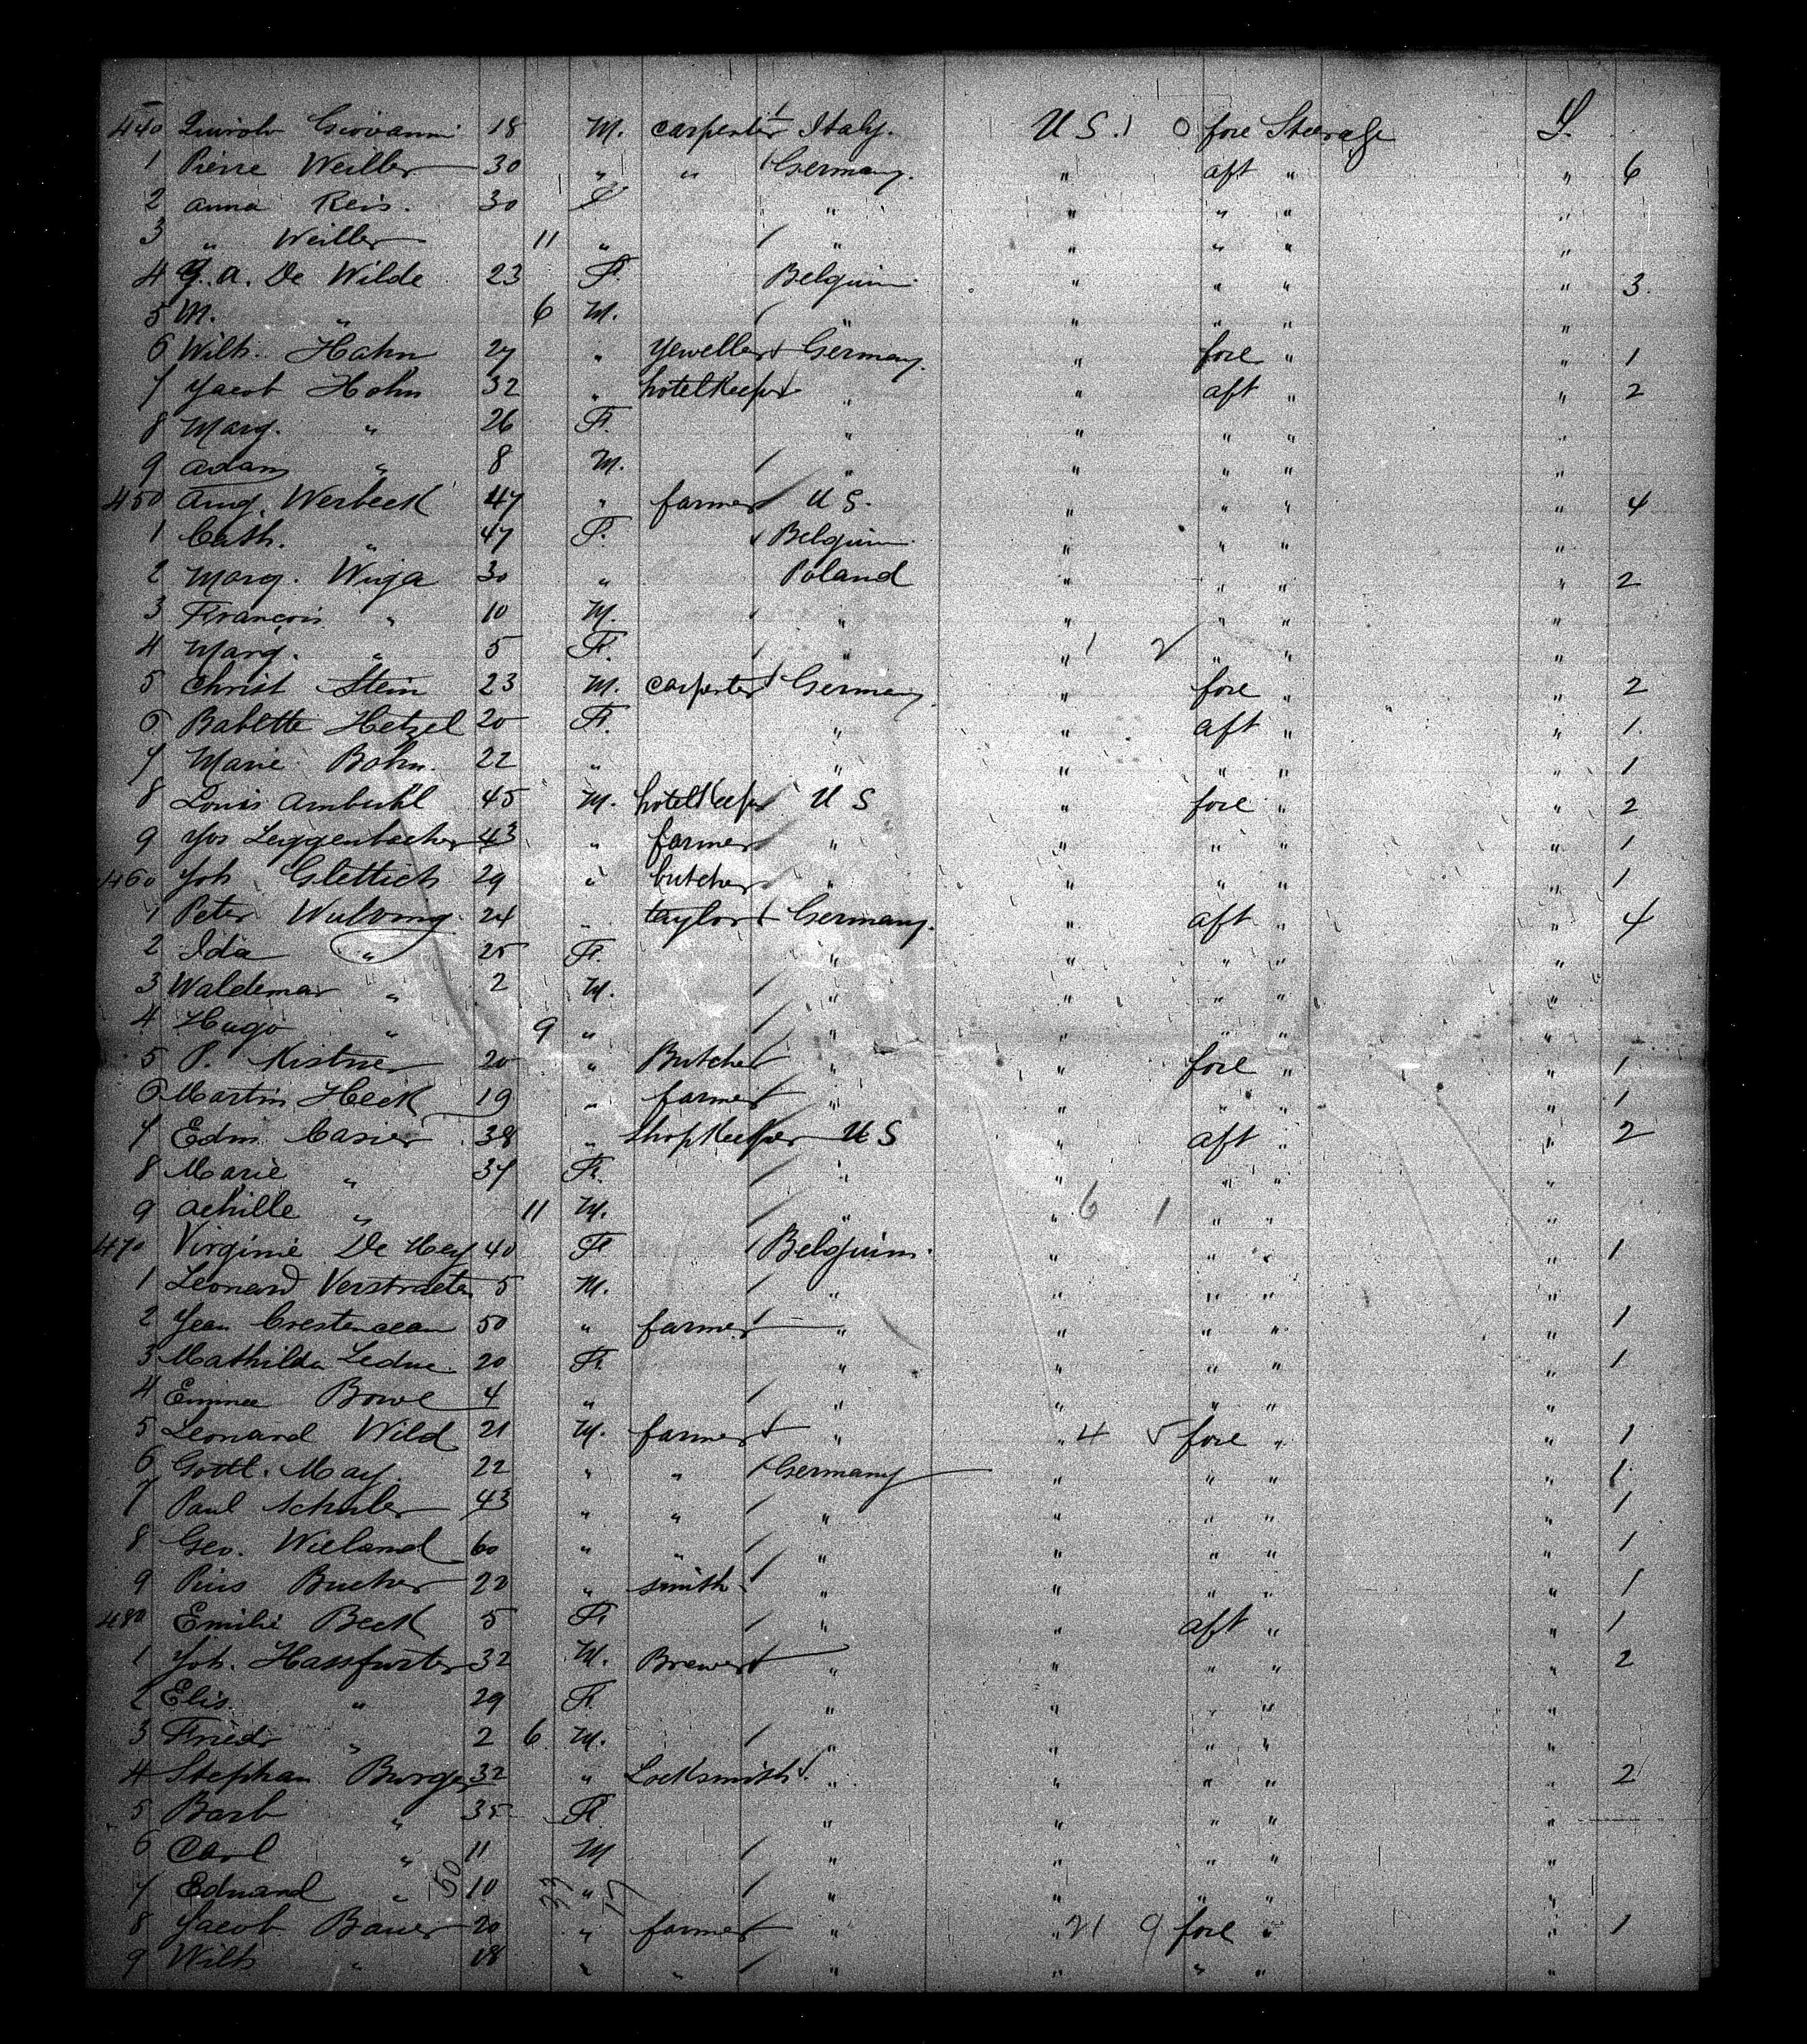 440 Quirolo Giovanni 18 M. carpenter Italy. U S. 1 0 fore Steerage S.
1 Pierre Weiller 30 " " Germany. " aft " " 6
2 Anna Reis. 30 F " " " " "
3 " Weiller 11 " " " " " "
4 G. A. De Wilde 23 F. Belgium. " " " " 3.
5 M. " 6 M. " " " " "
6 Wilh. Hahn 27 " Yeweller Germany. " fore " " 1
7 Jacob Hohn 32 " hotelkeeper " " aft " " 2
8 Marg. " 26 F. " " " " "
9 Adam " 8 M. " " " " "
450 Aug. Werbeck 47 " farmer U S. " " " " 4
1 Cath. " 47 F. Belgium. " " " "
2 Marg. Wuja 30 " Poland " " " " 2
3 François " 10 M. " " " " "
4 Marg. " 5 F. " " 1 2 " " "
5 Christ Stein 23 M. carpenter Germany " fore " " 2
6 Babette Hetzel 20 F. " " aft " " 1
7 Marie Bohn. 22 " " " " " " 1
8 Louis Ambuhl 45 M. hotelkeeper U S " fore " " 2
9 Jos Leggenbacher 43 " farmer " " " " " 1
460 Joh Glettich 29 " butcher " " " " " 1
1 Peter Wulving 24 " taylor Germany. " aft " " 4
2 Ida " 25 F. " " " " "
3 Waldemar " 2 M. " " " " "
4 Hugo " 9 " " " " " "
5 P. Kistner 20 " Butcher " " fore " " 1
6 Martin Heck 19 " farmer " " " " " 1
7 Edm. Casier 38 " Shopkeeper U S " aft " " 2
8 Marie " 37 F. " " " " "
9 Achille " 11 M. " " 6 1 " " "
470 Virginie De Hey 40 F Belgium. " " " " 1
1 Leonard Verstraeten 5 M. " " " " "
2 Jean Crestenceau 50 " farmer " " " " " 1
3 Mathilda Leduc. 20 F. " " " " " 1
4 Emma Bowe 4 " " " " " "
5 Leonard Wild 21 M. farmer " " 4 5 fore " " 1
6 Gottl. May. 22 " " Germany " " " " 1
7 Paul Schuler 43 " " " " " " " 1
8 Geo. Wieland 60 " " " " " " " 1
9 Pius Bucher 22 " smith " " " " " 1
480 Emilie Beck 5 F " " aft " " 1
1 Joh. Hassfurter 32 M. Brewer " " " " " 2
2 Elis. " 29 F. " " " " "
3 Friedr " 2 6 M. " " " " "
4 Stephan Burger 32 " Locksmith " " " " " 2
5 Barb " 35 F. " " " " "
6 Carl " 11 M " " " " "
7 Eduard " 50 10 33 " 17 " " " " "
8 Jacob Bauer 20 " farmer " " 21 9 fore " " 1
9 Wilh " 18 " " " " " " "